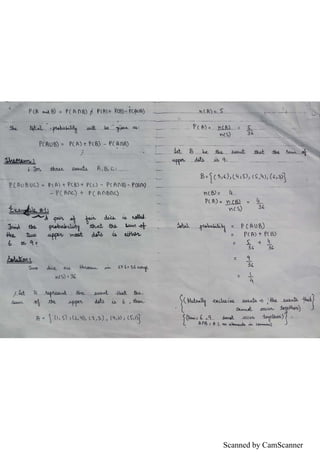 P(A and B) = P(A∩B) ≠ P(A)+ P(B)- P(A∩B)
The total probability will be given as
P(A∪B) = P(A) + P(B) - P(A∩B)
Theorem:
For three events A, B, C:
P(A∪B∪C) = P(A) + P(B) + P(C) - P(A∩B) - P(B∩C)
- P(A∩C) + P(A∩B∩C)
Example #1:
A pair of fair dice is rolled
Find the probability that the sum of
the two upper most dots is either
6 or 9.
Solution:
Two dice are thrown in 6×6=36 ways
n(S)=36
Let A represent the event that the
sum of the upper dots is 6, then
A = {(1,5),(2,4),(3,3),(4,2),(5,1)}
n(A) = 5
P(A) = n(A)/n(S) = 5/36
Let B be the event that the sum of
upper dots is 9.
B = {(3,6),(4,5),(5,4),(6,3)}
n(B) = 4
P(B) = n(B)/n(S) = 4/36
Total probability = P(A∪B)
= P(A) + P(B)
= 5/36 + 4/36
= 9/36
= 1/4
{(Mutually exclusive events => the events that
cannot occur together)}
{(Sum: 6, 9 cannot occur together)
A∩B = { } no elements in common}
Scanned by CamScanner